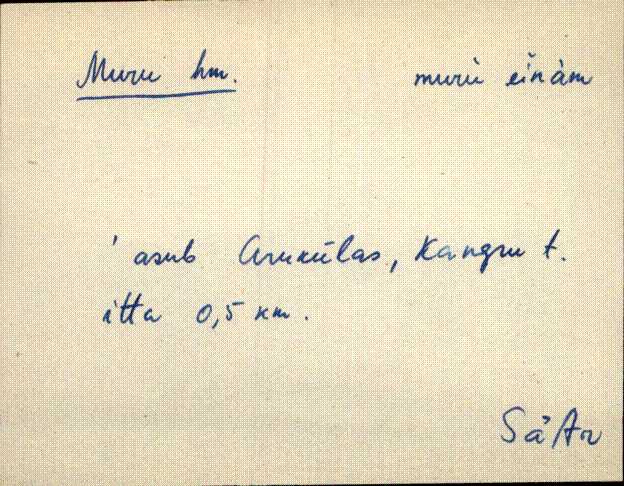 Muru hm. murù einàm
' asub Arukülas, Kangru t.
itta 0,5 km.
Sä'Ar